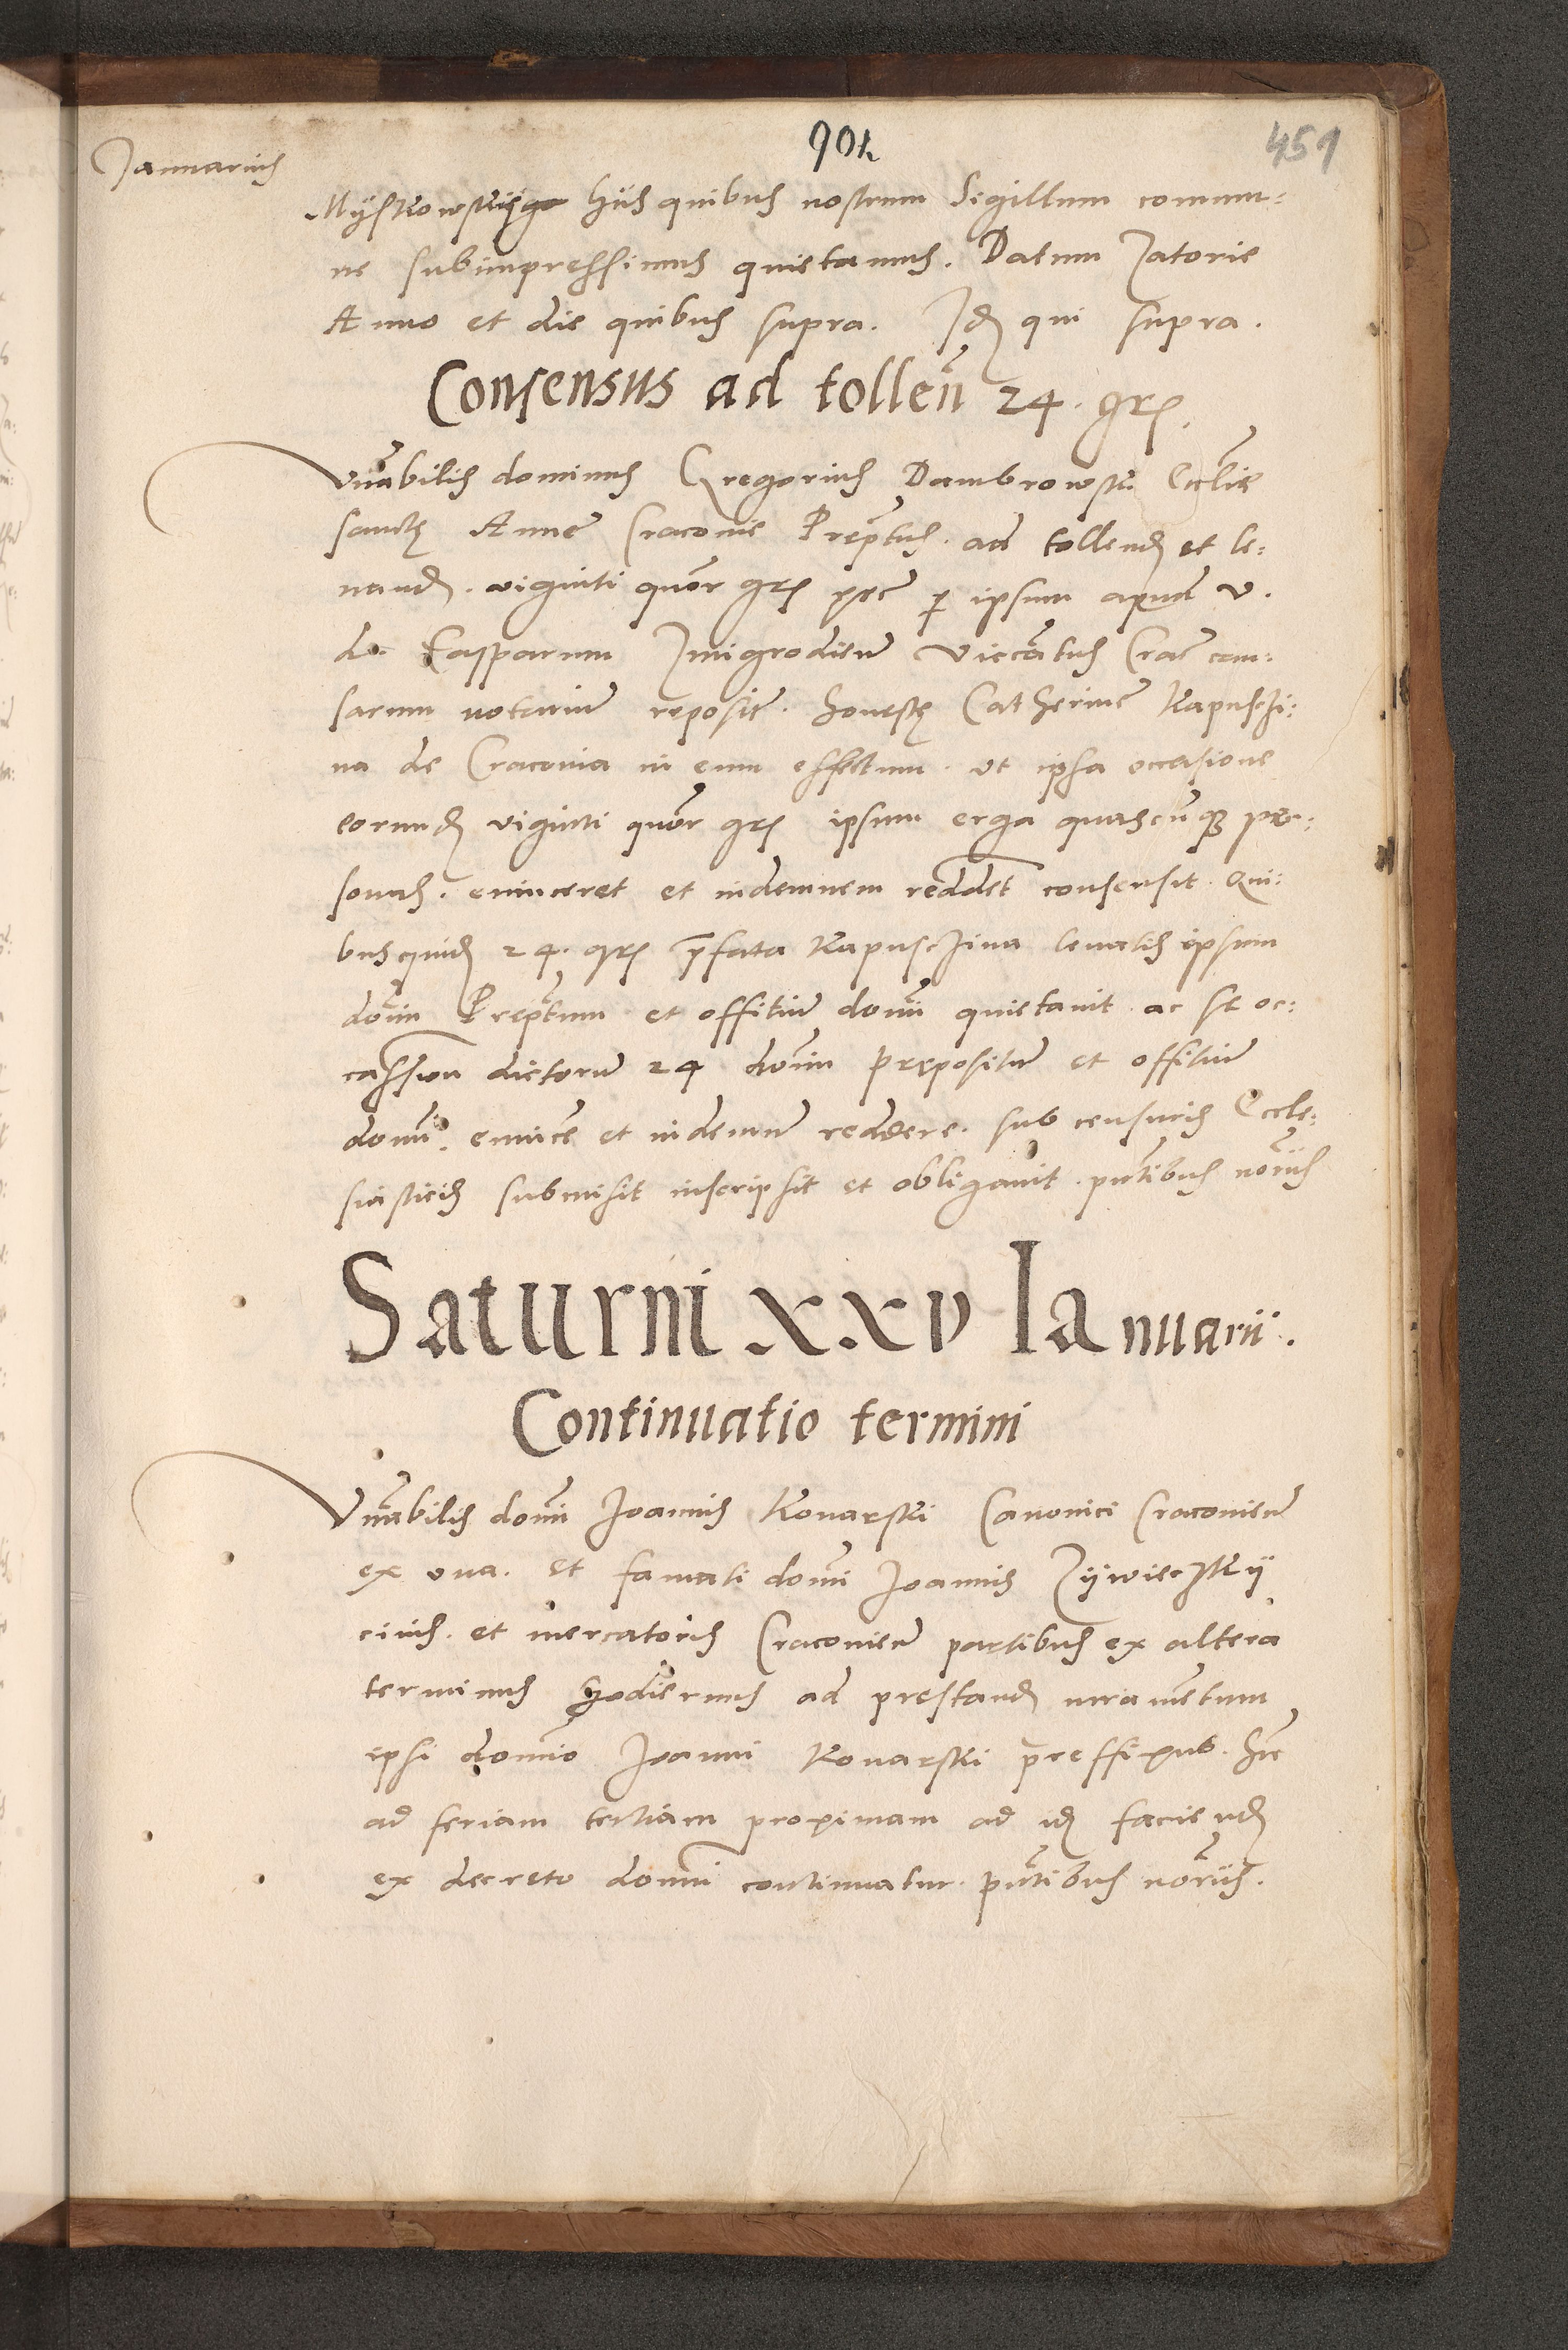 901
459
Januarius
Myskowskiego hiis quibus nostrum Sigillum commu:
ne subimpressimus quietamus. Datum Zatorie
Anno et die quibus supra. Idem qui supra.
Consensus ad tollen̄ 24. grs.
Vnābilis dominus Gregorius Dambrowski Ecclīe
sancte Anne Cracovie Prep̄tus. ad tollend et le:
uand. viginti quōr grs per ipsum apud V.
d. Casparum Zmigrodień Vicerātus Crac̄ cau:
sarum notariū reposit. honeste Catherine Kapusczi:
na de Cracovia in eum effectum. ut ipsa occasione
eorund viginti quōr grs ipsum erga quascūq per:
sonas. evinceret et indemnem redderet consensit. Qui:
busquid 24. grs p̄fata Kapusczina levatis ipsum
dōm Prep̄tum et offitiū domī quietavit ac se oc:
cassion dictorū 24 dōm prepositū et offitiū
domī. evincē et indemnē reddere. sub censuris Eccle:
siasticis submisit inscripsit et obligavit. pn̄tibus nōriis
Saturni xxv Ianuarii.
Continuatio termini
Vnābilis domī Joannis Konarski Canonici Cracovień
ex una. et famati domī Joannis Zywieczky
civis. et mercatoris Cracovień partibus ex altera
terminus hodiernus ad prestand iuramentum
ipsi domīo Joanni Konarski preffixus. hic
ad feriam tertiam proximam ad id faciend
ex decreto domī continuatur. pn̄tibus nōriis.